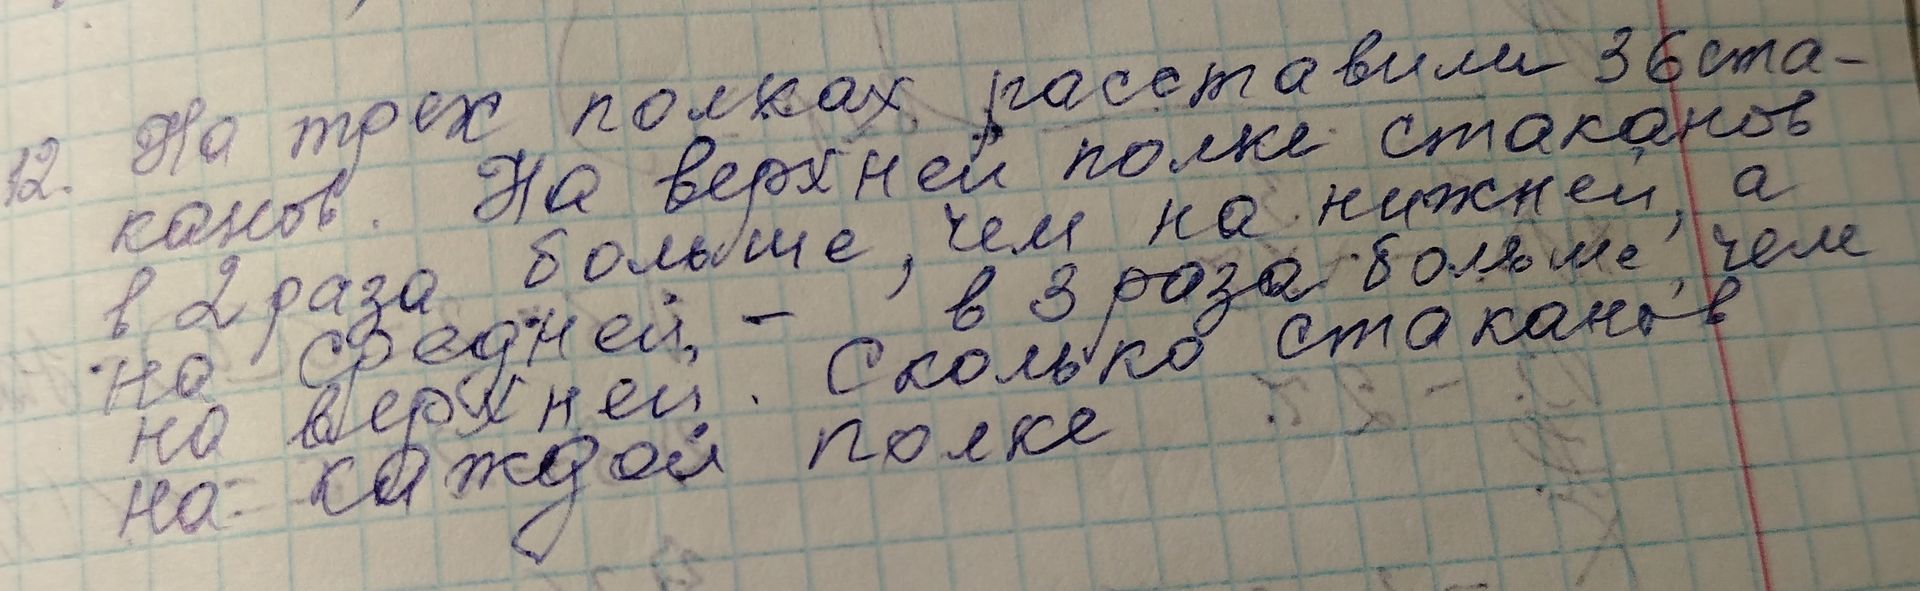 12. На трех полках расставили 36 ста-
канов. На верхней полке стаканов
в 2 раза больше, чем на нижней, а
на средней, - в 3 раза больше, чем
на верхней. Сколько стаканов
на каждой полке